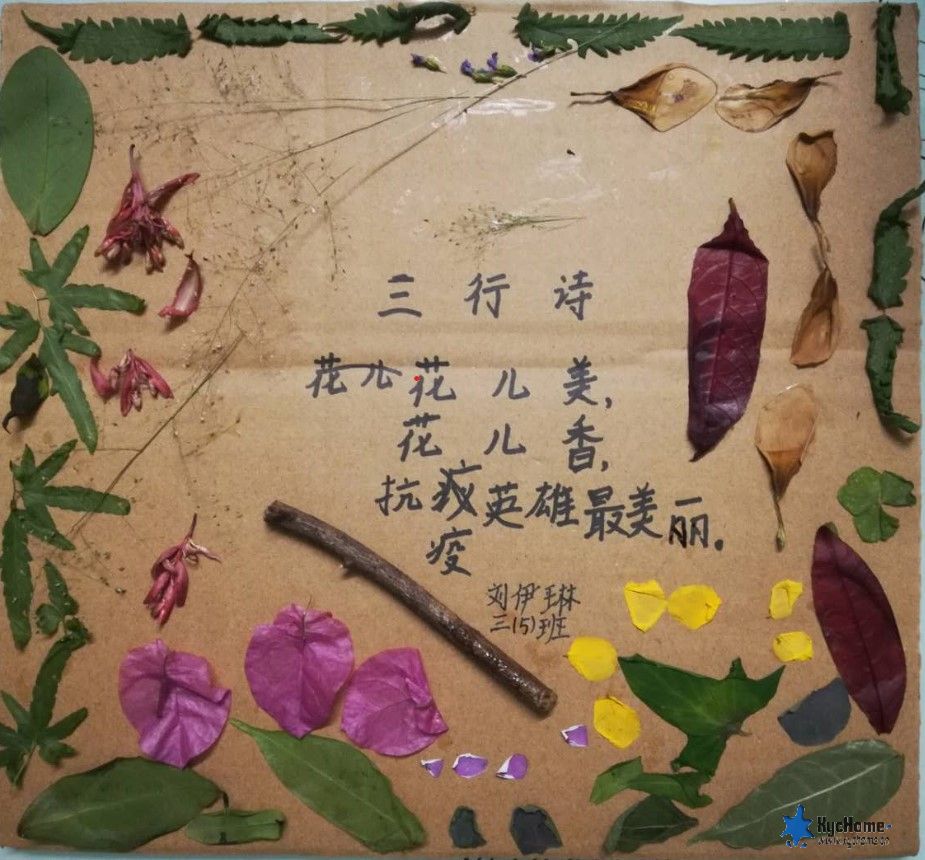 三行诗
花儿花儿美，
花儿香，
抗疫英雄最美丽。
疫
刘伊琳
三(5)班
KycHome
www.kychome.cn